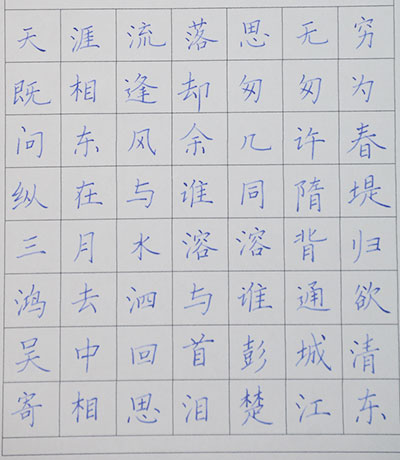 天涯流落思无穷
既相逢却匆匆为
问东风余几许春
纵在与谁同隋堤
三月水溶溶背归
鸿去泗与谁通欲
吴中回首彭城清
寄相思泪楚江东